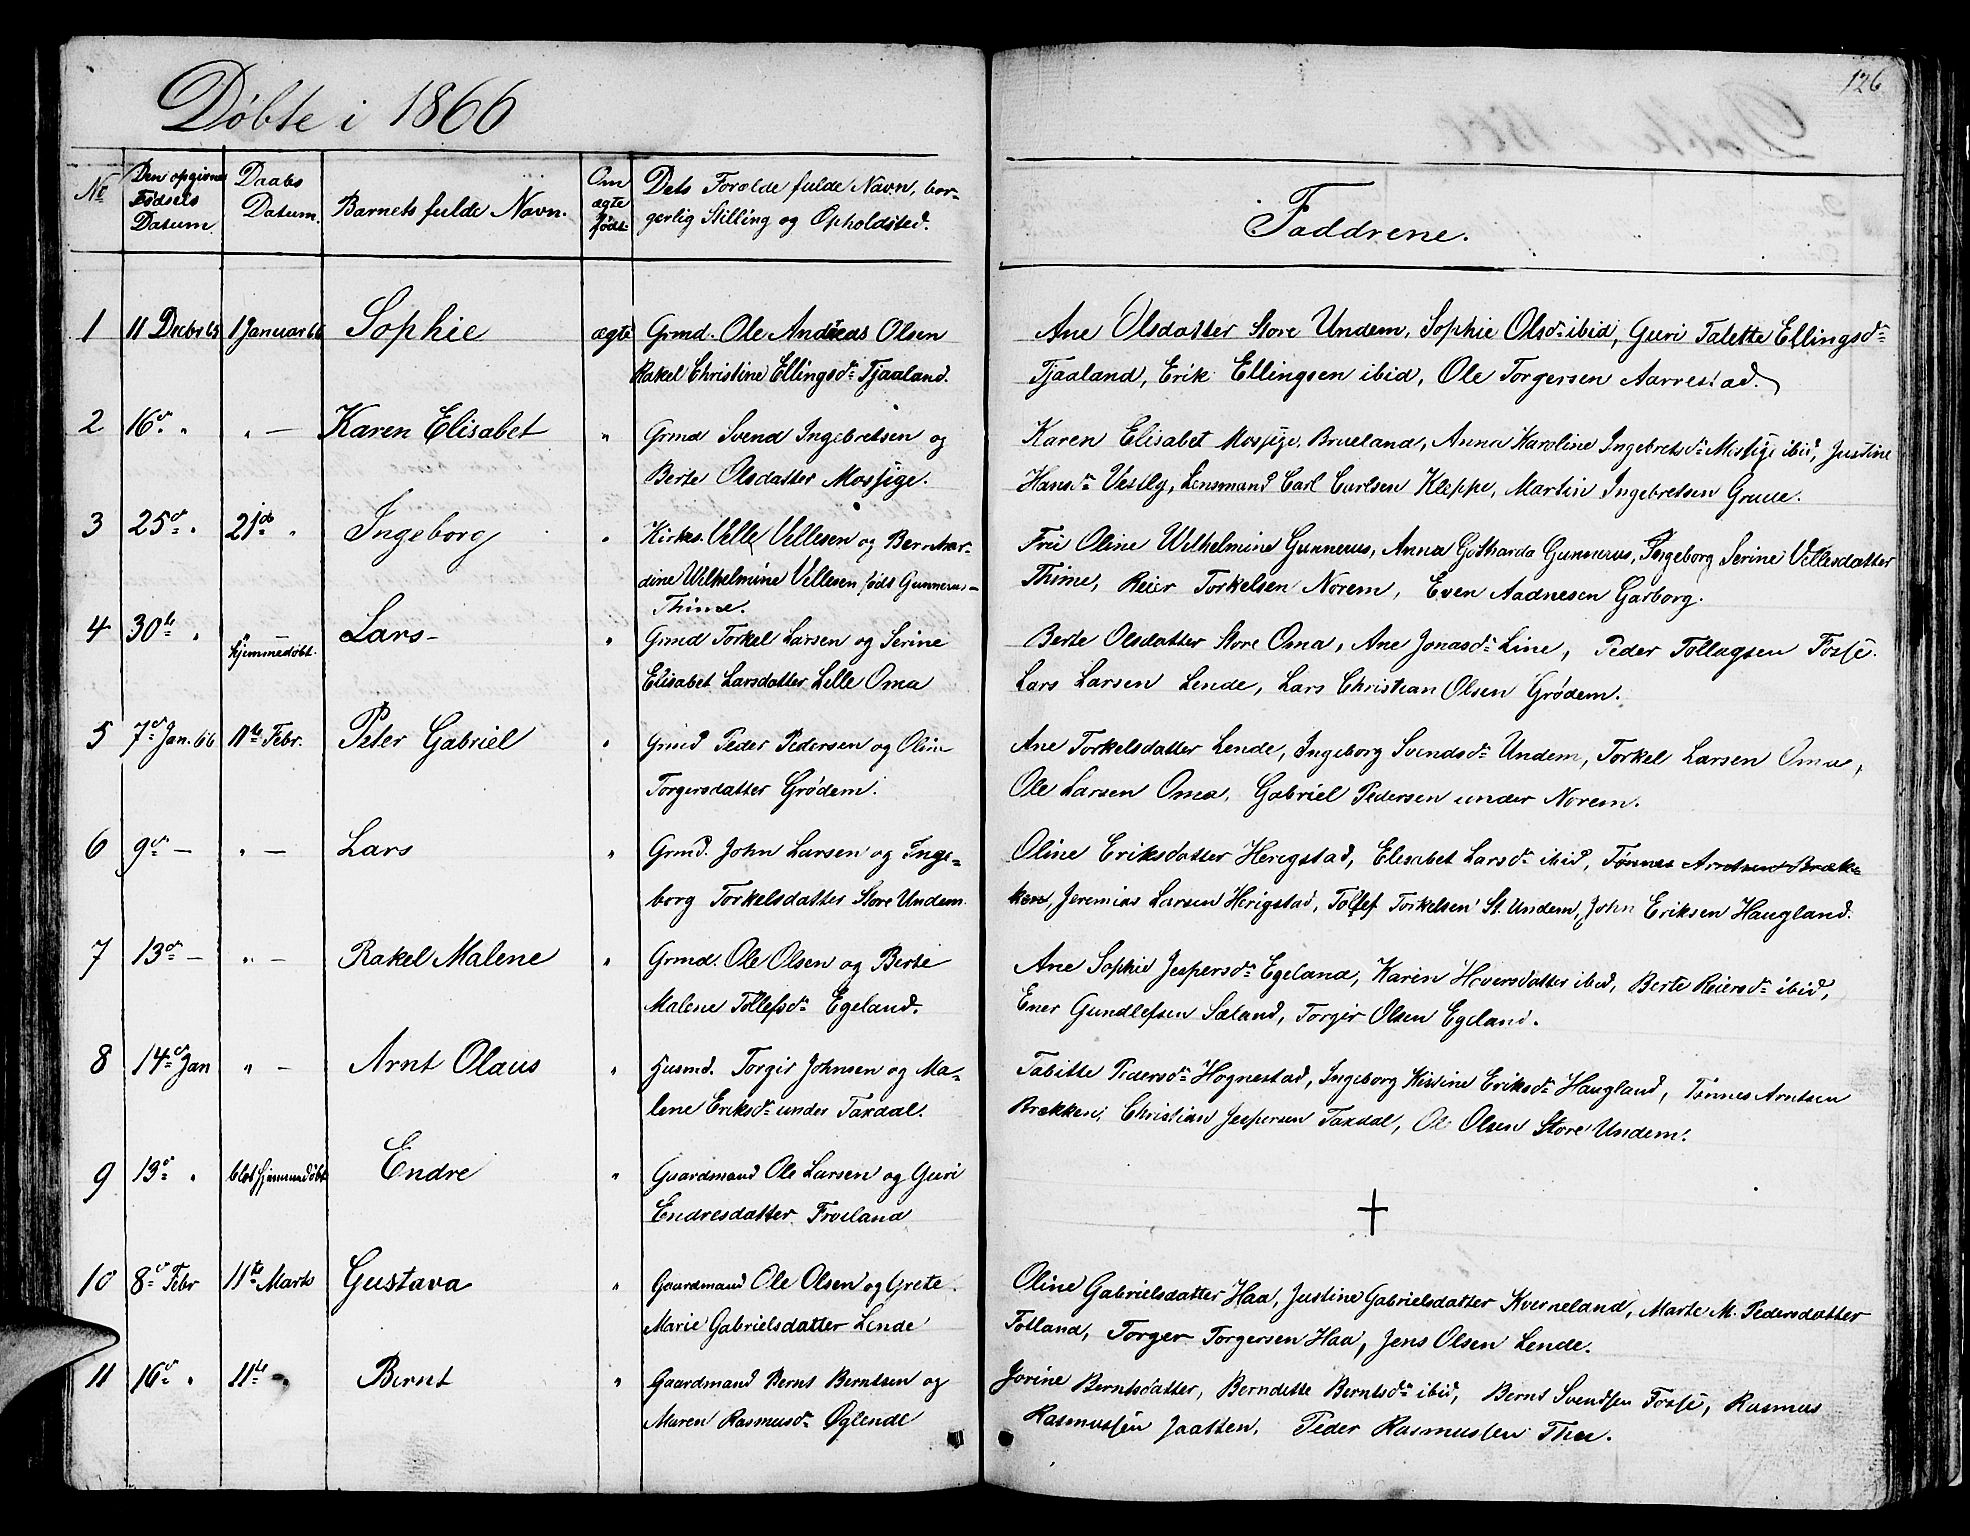 Døbte i 1866
126
No
Den opgivne Fødsels Datum
Daabs Datum.
Barnets fulde Navn.
Om ægte født
Dets Forælde fulde Navn, borgerlig Stilling og Opholdsted.
Faddrene.
1 11 Decbr 65 1 Januar 66 Sophie ægte Grmd. Ole Andreas Olsen
Rakel Christine Ellingsdr Tjaaland.
Ane Olsdatter Store Undem, Sophie Olsdr ibid, Guri Talette Ellingsdr
Tjaaland, Erik Ellingsen ibid, Ole Torgersen Aarrestad.
2 16de " " — Karen Elisabet " Grmd Svend Ingebretsen og
Berte Olsdatter Mossige.
Karen Elisabet Mossige, Brueland, Anna Karoline Ingebretsdr Mossige ibid, Justine
Hansdr Vestly, Lensmand Carl Carlsen Kleppe, Martin Ingebretsen Grude.
3 25de " 21de " Ingeborg " Kirkes. Velle Vellesen og Bernhar-
dine Wilhelmine Vellesen født Gunnerus
Thime.
Fru Oline Wilhelmine Gunnerus, Anna Gotharda Gunnerus, Ingeborg Serine Vellesdatter
Thime, Reier Torkelsen Norem, Even Aadnesen Garborg.
4 30te " hjemmedøbt. Lars " Grmd Torkel Larsen og Serine
Elisabet Larsdatter Lille Oma
Berte Olsdatter Store Oma, Ane Jonasdr Line, Peder Tollagsen Fosse.
Lars Larsen Lende, Lars Christian Olsen Grødem.
5 7de Jan. 66 11te Febr. Peter Gabriel " Grmd Peder Pedersen og Olin
Torgersdatter Grødem.
Ane Torkelsdatter Lende, Ingeborg Svendsdr Undem, Torkel Larsen Oma,
Ole Larsen Oma, Gabriel Pedersen under Norem.
6 9de — " — Lars " Grmd. John Larsen og Inge-
borg Torkelsdatter Store Undem.
Oline Eriksdatter Herigstad, Elisabet Larsdr ibid, Tønnes Arntsen Bræk-
ken, Jeremias Larsen Herigstad, Tollef Torkelsen St. Undem, John Eriksen Haugland.
7 13de — " — Rakel Malene " Grmd. Ole Olsen og Berte
Malene Tollefsdr Egeland.
Ane Sophie Jespersdr Egeland, Karen Hoversdatter ibid, Berte Reiersdr ibid,
Ener Gundlefsen Sæland, Torger Olsen Egeland.
8 14de Jan " — Arnt Olaus " Husmd. Torgir Johnsen og Ma-
lene Eriksdr under Taxdal.
Tabitte Pedersdr Hognestad, Ingeborg Kistine Eriksdr Haugland, Tønnes Arntsen
Brækken, Christian Jespersen Taxdal, Ole Olsen Store Undem.
9 13de " blot hjemmedøbt Endre " Gaardmand Ole Larsen og Guri
Endresdatter Frøiland
10 8de Febr 11te Marts Gustava " Gaardmand Ole Olsen og Grete
Marie Gabrielsdatter Lende
Oline Gabrielsdatter Haa, Justine Gabrielsdatter Kverneland, Marte M. Pedersdatter
Folland, Torger Torgersen Haa, Jens Olsen Lende.
11 16de " 11te " Bernt " Gaardmand Bernt Berntsen og
Maren Rasmusdr Øglende
Jorine Berntsdatter, Berndette Berntsdr ibid, Bernt Svendsen Fosse, Rasmus
Rasmussen Jaatten, Peder Rasmussen Thu.